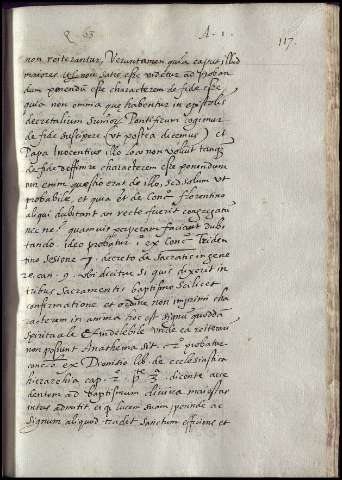 Q. 63 A. 1. 117.
non reiterantur, Verumtamen quia casus illud
maiores vel non satis esse videtur ad proban
dum ponendũ esse characterem de fide esse
quia non omnia que habentur in epistolis
decretalium Sum̃oȝ Pontificum cogimur
de fide suscipere (vt postea dicemus) et
Papa Inocentius illo loco non voluit tanq̃
de fide deffinire characterem esse ponendum
non enim questio erat de illo, sed solum vt
probabile, et quia et de Conc° florentino
aliqui dubitant an recte fuerit congregatũ
nec ne, quamuis perperam faciant dubi
tando. ideo probatur 1° ex Conc° Triden
tino Sesione 7. decreto de Sacratis in gene
re. can. 9. vbi dicitur si quis dixerit in
tribus Sacramentis baptismo Scilicet
confirmatione et ordine non imprimi cha
racterem in anima hoc est signũ quoddã
spirituale et indelebile unde ea reiterari
non possunt Anathema sit. 2° probatur
ex Dionisio lib. de ecclesiastica
hierarchia cap. 2. p. 3. dicente acce
dentem ad baptismum divina maiestas
intus admitit eiq lucem suam, perinde ac
signum aliquod tradit sanctum efficiens et